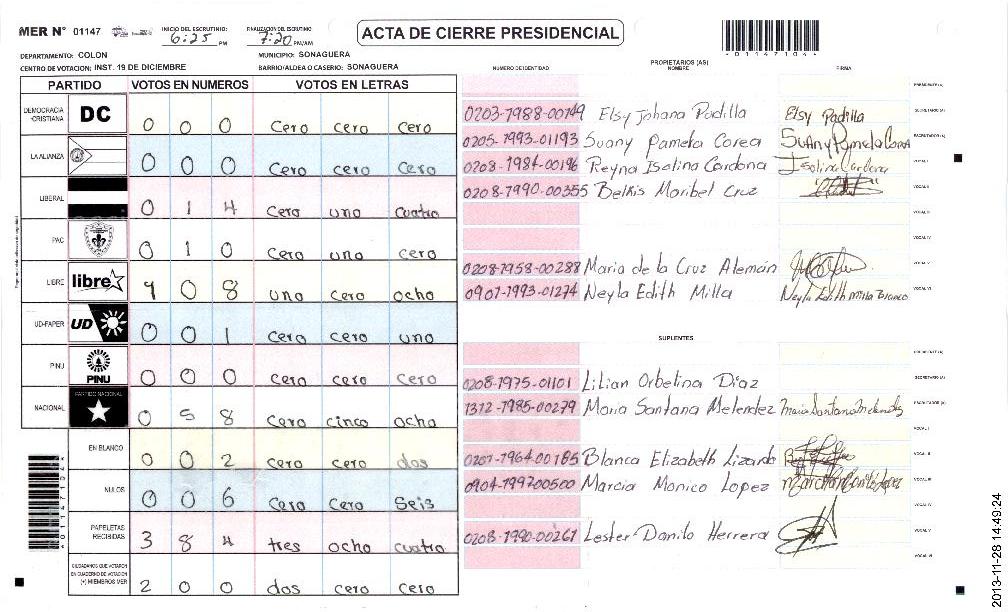 MER N° 01147
INICIO DEL ESCRUTINIO: 6:25 PM
FINALIZACION DEL ESCRUTINIO 7:20 PM/AM
ACTA DE CIERRE PRESIDENCIAL
01147104
DEPARTAMENTO: COLON
MUNICIPIO: SONAGUERA
CENTRO DE VOTACION: INST. 19 DE DICIEMBRE
BARRIO/ALDEA O CASERIO: SONAGUERA
PARTIDO VOTOS EN NUMEROS VOTOS EN LETRAS
DEMOCRACIA CRISTIANA DC 0 0 0 Cero cero cero
LA ALIANZA 0 0 0 Cero cero cero
LIBERAL 0 1 4 Cero uno cuatro
PAC 0 1 0 Cero uno cero
LIBRE libre 1 0 8 uno cero ocho
UD-FAPER UD 0 0 1 Cero cero uno
PINU PINU 0 0 0 Cero cero cero
NACIONAL PARTIDO NACIONAL 0 5 8 Cero cinco ocho
EN BLANCO 0 0 2 cero cero dos
NULOS 0 0 6 Cero Cero Seis
PAPELETAS RECIBIDAS 3 8 4 tres ocho cuatro
CIUDADANOS QUE VOTARON EN CUADERNO DE VOTACION (+) MIEMBROS MER 2 0 0 dos cero cero
PROPIETARIOS (AS)
NUMERO DE IDENTIDAD NOMBRE FIRMA
PRESIDENTE (A)
0203-1988-00149 Elsy Johana Padilla Elsy Padilla SECRETARIO (A)
0205-1993-01193 Suany Pamela Corea Suany Pamela Corea ESCRUTADOR (A)
0208-1984-00196 Reyna Isolina Cardona Isolina Cardona VOCAL I
0208-1990-00355 Belkis Maribel Cruz VOCAL II
VOCAL III
VOCAL IV
0208-1958-00288 Maria de la Cruz Alemán VOCAL V
0907-1993-01274 Neyla Edith Milla Neyla Edith Milla Blanco VOCAL VI
SUPLENTES
PRESIDENTE (A)
0208-1975-01101 Lilian Orbelina Diaz SECRETARIO (A)
1312-1985-00279 Maria Santana Melendez Maria Santana Melendez ESCRUTADOR (A)
VOCAL I
0207-1964-00185 Blanca Elizabeth Lizardo VOCAL II
0904-1997-00500 Marcia Monico Lopez VOCAL III
VOCAL IV
0208-1990-00267 Lester Danilo Herrera VOCAL V
VOCAL VI
01147104
2013-11-28 14:49:24